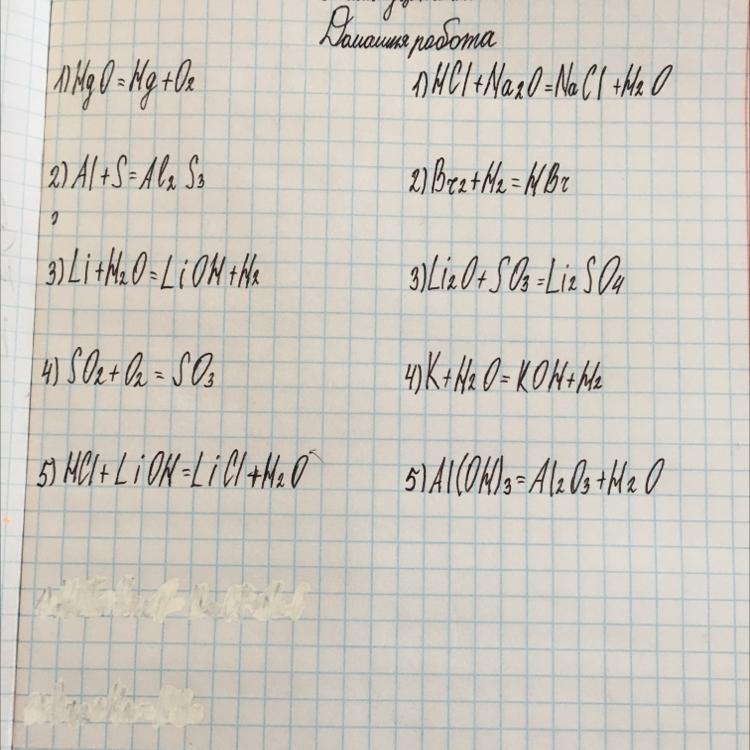 Домашня робота
1) MgO = Mg + O2
2) Al + S = Al2 S3
3) Li + H2O = LiOH + H2
4) SO2 + O2 = SO3
5) HCl + LiOH = LiCl + H2O
1) HCl + Na2O = NaCl + H2O
2) Br2 + H2 = HBr
3) Li2O + SO3 = Li2SO4
4) K + H2O = KOH + H2
5) Al(OH)3 = Al2O3 + H2O